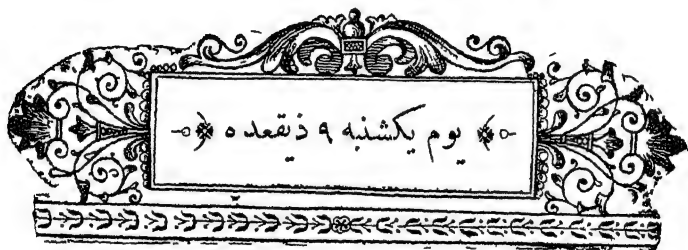 یوم یکشنبه ۹ ذیقعده